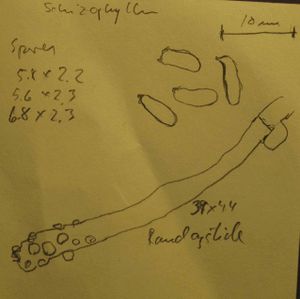 Schizophyllum
10 µm
Sporen
5.8 x 2.2
5.6 x 2.3
6.8 x 2.3
Randzystide